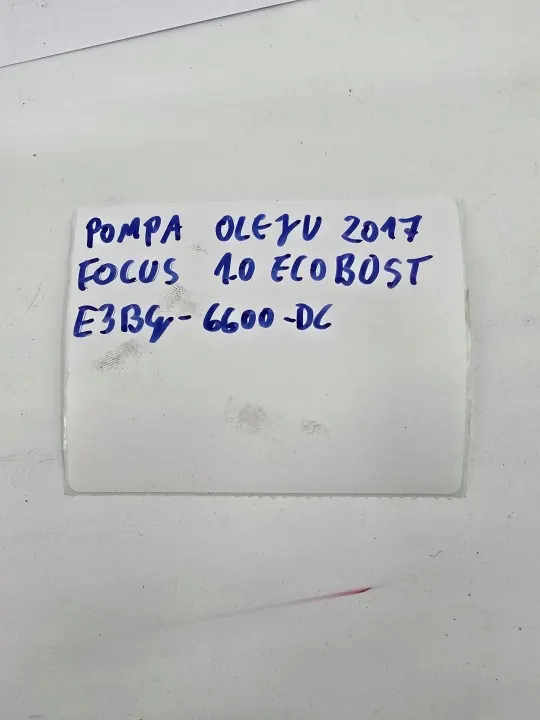 POMPA OLEJU 2017
FOCUS 1.0 ECOBOST
E3BG-6600-DC